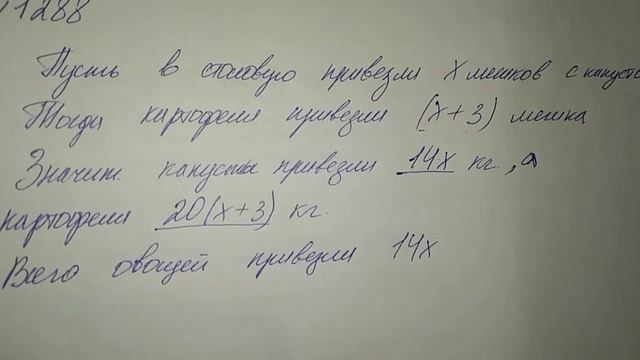 1288
Пусть в столовую привезли X мешков с капусто
Тогда картофеля привезли (x+3) мешка
Значит капусты привезли 14x кг, а
картофеля 20(x+3) кг.
Всего овощей привезли 14x